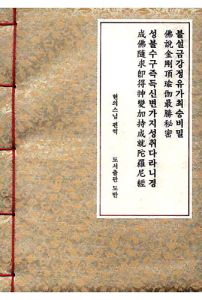 불설금강정유가최승비밀
佛說金剛頂瑜伽最勝秘密
성불수구즉득신변가지성취다라니경
成佛隨求即得神變加持成就陀羅尼經
현의스님 편역
도서출판 도반